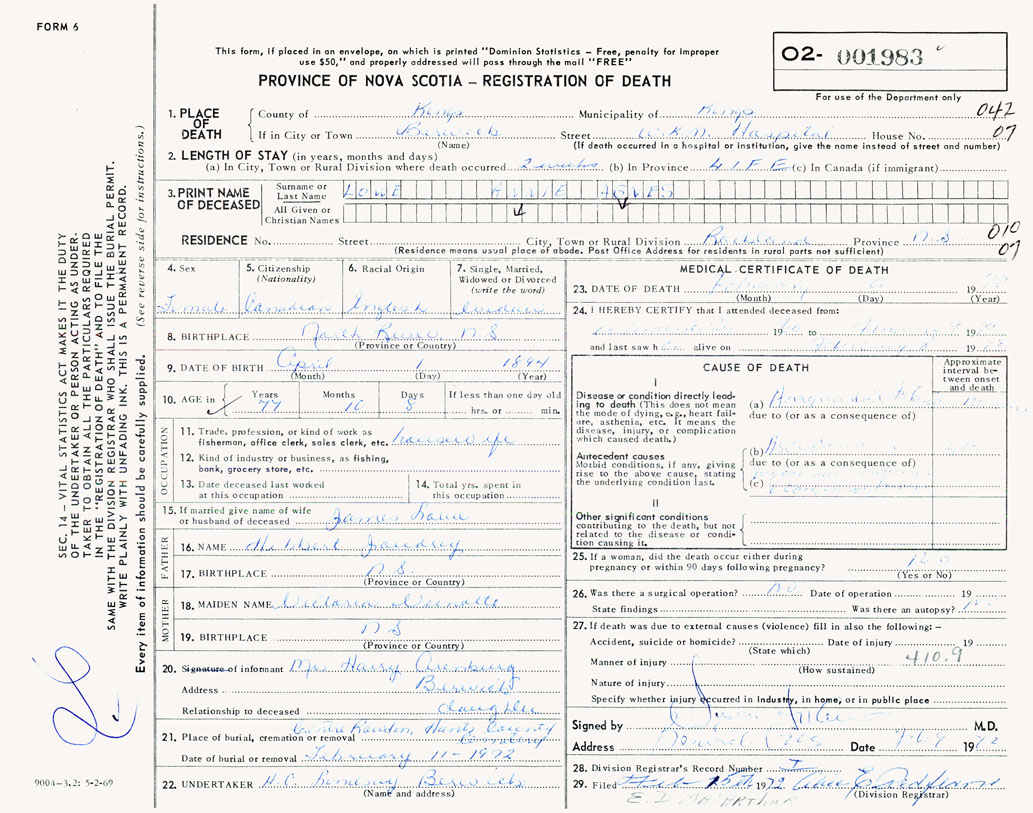 FORM 6
This form, if placed in an envelope, on which is printed "Dominion Statistics — Free, penalty for improper
use $50," and properly addressed will pass through the mail "FREE"
PROVINCE OF NOVA SCOTIA — REGISTRATION OF DEATH
02- 001983
For use of the Department only
SEC. 14 — VITAL STATISTICS ACT MAKES IT THE DUTY
OF THE UNDERTAKER OR PERSON ACTING AS UNDER-
TAKER TO OBTAIN ALL THE PARTICULARS REQUIRED
IN THE "REGISTRATION OF DEATH" AND TO FILE THE
SAME WITH THE DIVISION REGISTRAR WHO SHALL ISSUE THE BURIAL PERMIT.
WRITE PLAINLY WITH UNFADING INK. THIS IS A PERMANENT RECORD.
Every item of information should be carefully supplied. (See reverse side for instructions.)
1. PLACE OF DEATH
County of Kings Municipality of Kings 042
If in City or Town Berwick Street W.K.M. Hospital House No. 07
(Name) (If death occurred in a hospital or institution, give the name instead of street and number)
2. LENGTH OF STAY (in years, months and days)
(a) In City, Town or Rural Division where death occurred 2 weeks (b) In Province LIFE (c) In Canada (if immigrant)
3. PRINT NAME OF DECEASED
Surname or Last Name LOWE ANNIE AGNES
All Given or Christian Names
RESIDENCE No. Street City, Town or Rural Division Rockland Province N.S 010
(Residence means usual place of abode. Post Office Address for residents in rural parts not sufficient) 07
4. Sex Female
5. Citizenship (Nationality) Canadian
6. Racial Origin English
7. Single, Married, Widowed or Divorced (write the word) widow
8. BIRTHPLACE North N.S
(Province or Country)
9. DATE OF BIRTH April 1 1894
(Month) (Day) (Year)
10. AGE in Years 77 Months 10 Days 8 If less than one day old
hrs. or min.
OCCUPATION
11. Trade, profession, or kind of work as
fisherman, office clerk, sales clerk, etc. housewife
12. Kind of industry or business, as fishing,
bank, grocery store, etc.
13. Date deceased last worked
at this occupation
14. Total yrs. spent in
this occupation
15. If married give name of wife
or husband of deceased James Lowe
FATHER
16. NAME Hibbert
17. BIRTHPLACE N.S
(Province or Country)
MOTHER
18. MAIDEN NAME Victoria
19. BIRTHPLACE N S
(Province or Country)
20. Signature of informant Mrs Harry
Address Berwick
Relationship to deceased daughter
21. Place of burial, cremation or removal Centre Rawdon, Hants County
Cemetery
Date of burial or removal February 11-1972
22. UNDERTAKER H.C. Berwick
(Name and address)
MEDICAL CERTIFICATE OF DEATH
23. DATE OF DEATH February 19
(Month) (Day) (Year)
24. I HEREBY CERTIFY that I attended deceased from:
19 to 19
and last saw h alive on 19
CAUSE OF DEATH
Approximate interval between onset and death
I
Disease or condition directly lead-
ing to death (This does not mean
the mode of dying, e.g., heart fail-
ure, asthenia, etc. It means the
disease, injury, or complication
which caused death.)
(a)
due to (or as a consequence of)
Antecedent causes
Morbid conditions, if any, giving
rise to the above cause, stating
the underlying condition last.
(b)
due to (or as a consequence of)
(c)
II
Other significant conditions
contributing to the death, but not
related to the disease or condi-
tion causing it.
25. If a woman, did the death occur either during
pregnancy or within 90 days following pregnancy? No
(Yes or No)
26. Was there a surgical operation? no Date of operation 19
State findings Was there an autopsy?
27. If death was due to external causes (violence) fill in also the following: —
Accident, suicide or homicide? Date of injury 19
(State which)
Manner of injury 410.9
(How sustained)
Nature of injury
Specify whether injury occurred in industry, in home, or in public place
Signed by M.D.
Address Date 1972
28. Division Registrar's Record Number
29. Filed Feb 15th 1972
(Division Registrar)
9004-3.2: 5-2-69